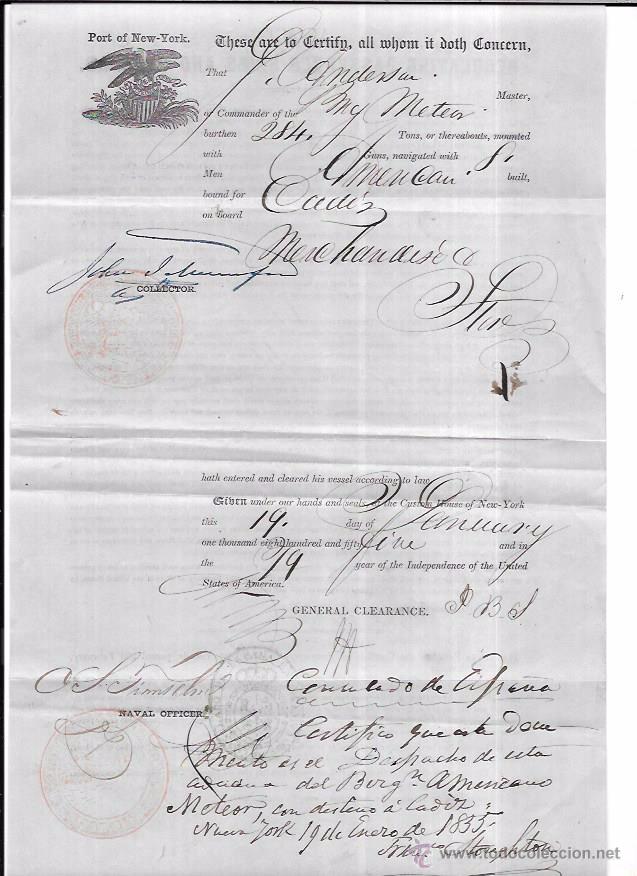 Port of New-York.
These are to Certify, all whom it doth Concern,
That J. Anderson
Master,
or Commander of the Brig Meteor
burthen 284. Tons, or thereabouts, mounted
with Guns, navigated with 8.
Men American built,
bound for Cadiz
on Board
Merchandise &
Stores
COLLECTOR.
hath entered and cleared his vessel according to law
Given under our hands and seals, at the Custom House of New-York
this 19. day of January
one thousand eight hundred and fifty five and in
the 79 year of the Independence of the United
States of America.
GENERAL CLEARANCE.
NAVAL OFFICER.
Consulado de España
Certifico que este Docu
mento es el Despacho de esta
aduana del Bergn. Americano
Meteor, con destino á Cadiz.
Nueva York 19 de Enero de 1855.
Franco Stoughton
© www.todocoleccion.net